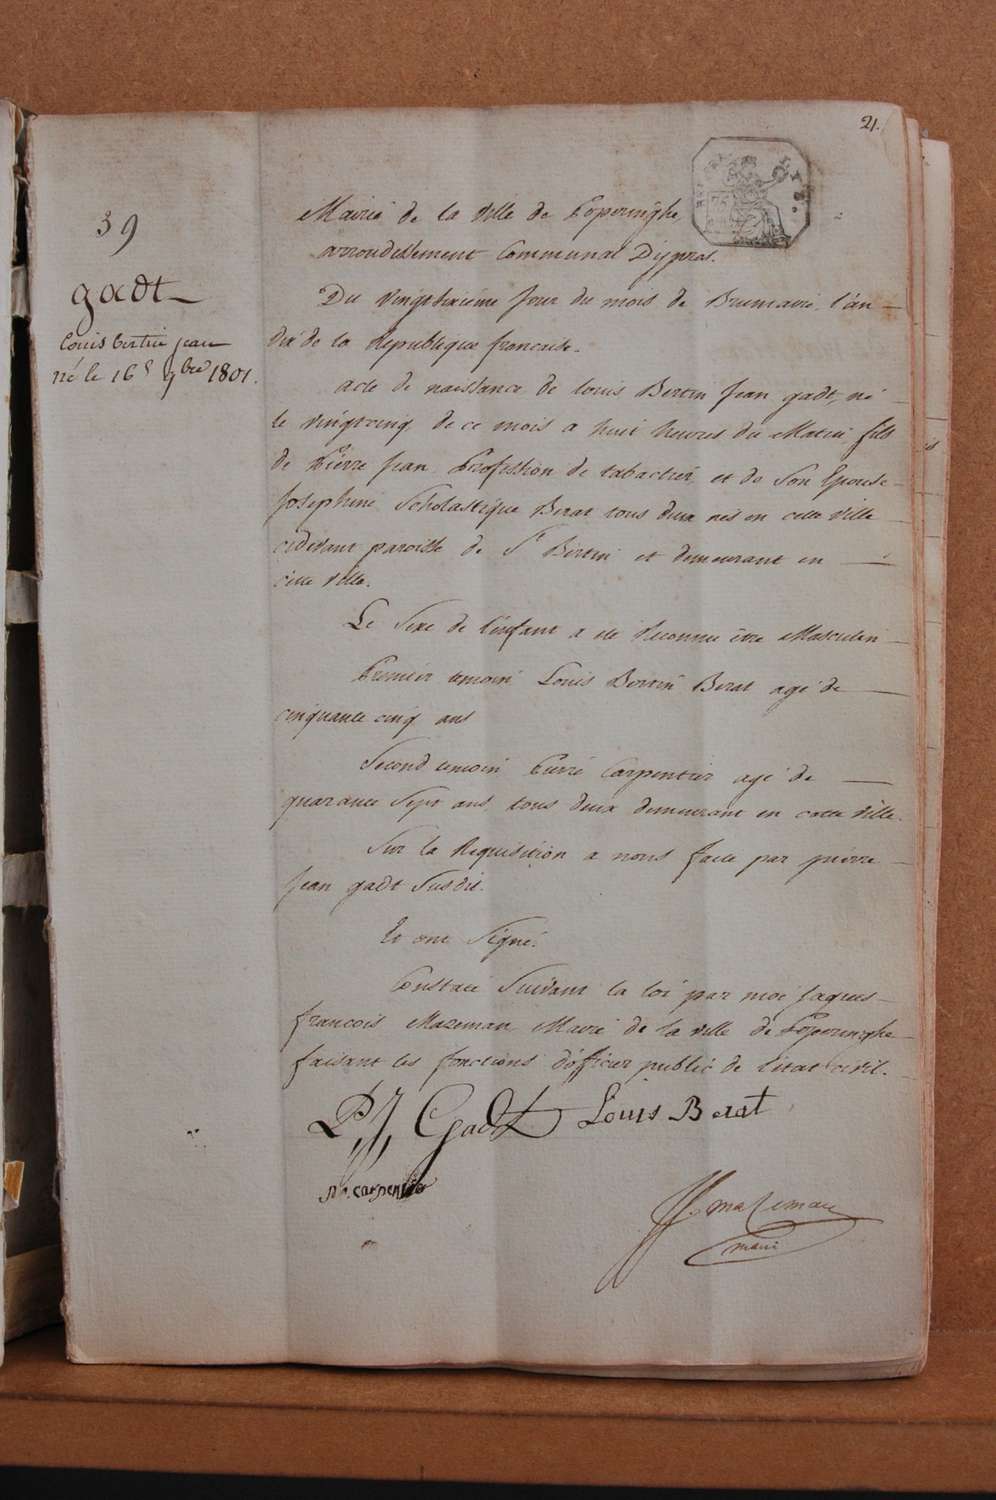 21.
39
gadt
Louis bertin jean
né le 16 9bre 1801.
Mairie de la ville de Poperinghe
arrondissement Communal D'ypres.
Du vingtsixieme jour du mois de Brumaire, l'an
dix de la Republique francaise.
acte de naissance de Louis Bertin Jean gadt, né
le vingtcinq de ce mois a huit heures du Matin, fils
de Pierre Jean, Profession de tabactier, et de Son Epouse
Josephine Scholastique Berat tous deux nés en cette ville
cidevant paroisse de St Bertin et demeurant en
cette ville.
Le Sexe de l'enfant a ete Reconnu être Masculin
Premier temoin Louis Bertin Berat agé de
cinquante cinq ans
Second temoin Pierre Carpentier agé de
quarante Sept ans, tous deux demeurant en cette ville.
Sur la Requisition a nous faite par pierre
Jean gadt Susdit.
Et ont Signé.
Constaté Suivant la loi par moi Jaques
francois Mazeman Maire de la ville de Poperinghe
faisant les fonctions d'officier public de l'etat civil.
P, J, Gadt Louis Berat
carpentier
JF. mazeman
maire